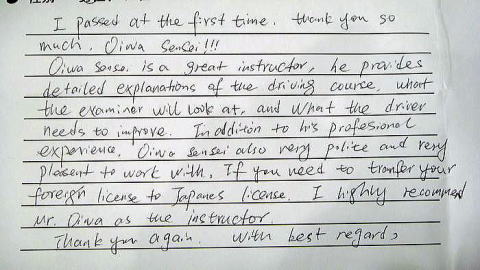 I passed at the first time. thank you so
much. Oiwa Sensei!!!
Oiwa sensei is a great instructor, he provides
detailed explanations of the driving course, what
the examiner will look at, and what the driver
needs to improve. In addition to his profesional
experience, Oiwa sensei also very polite and very
pleasent to work with, If you need to tranfer your
foreign license to Japanes license. I highly recommend
Mr. Oiwa as the instructor.
Thank you again. With best regard,